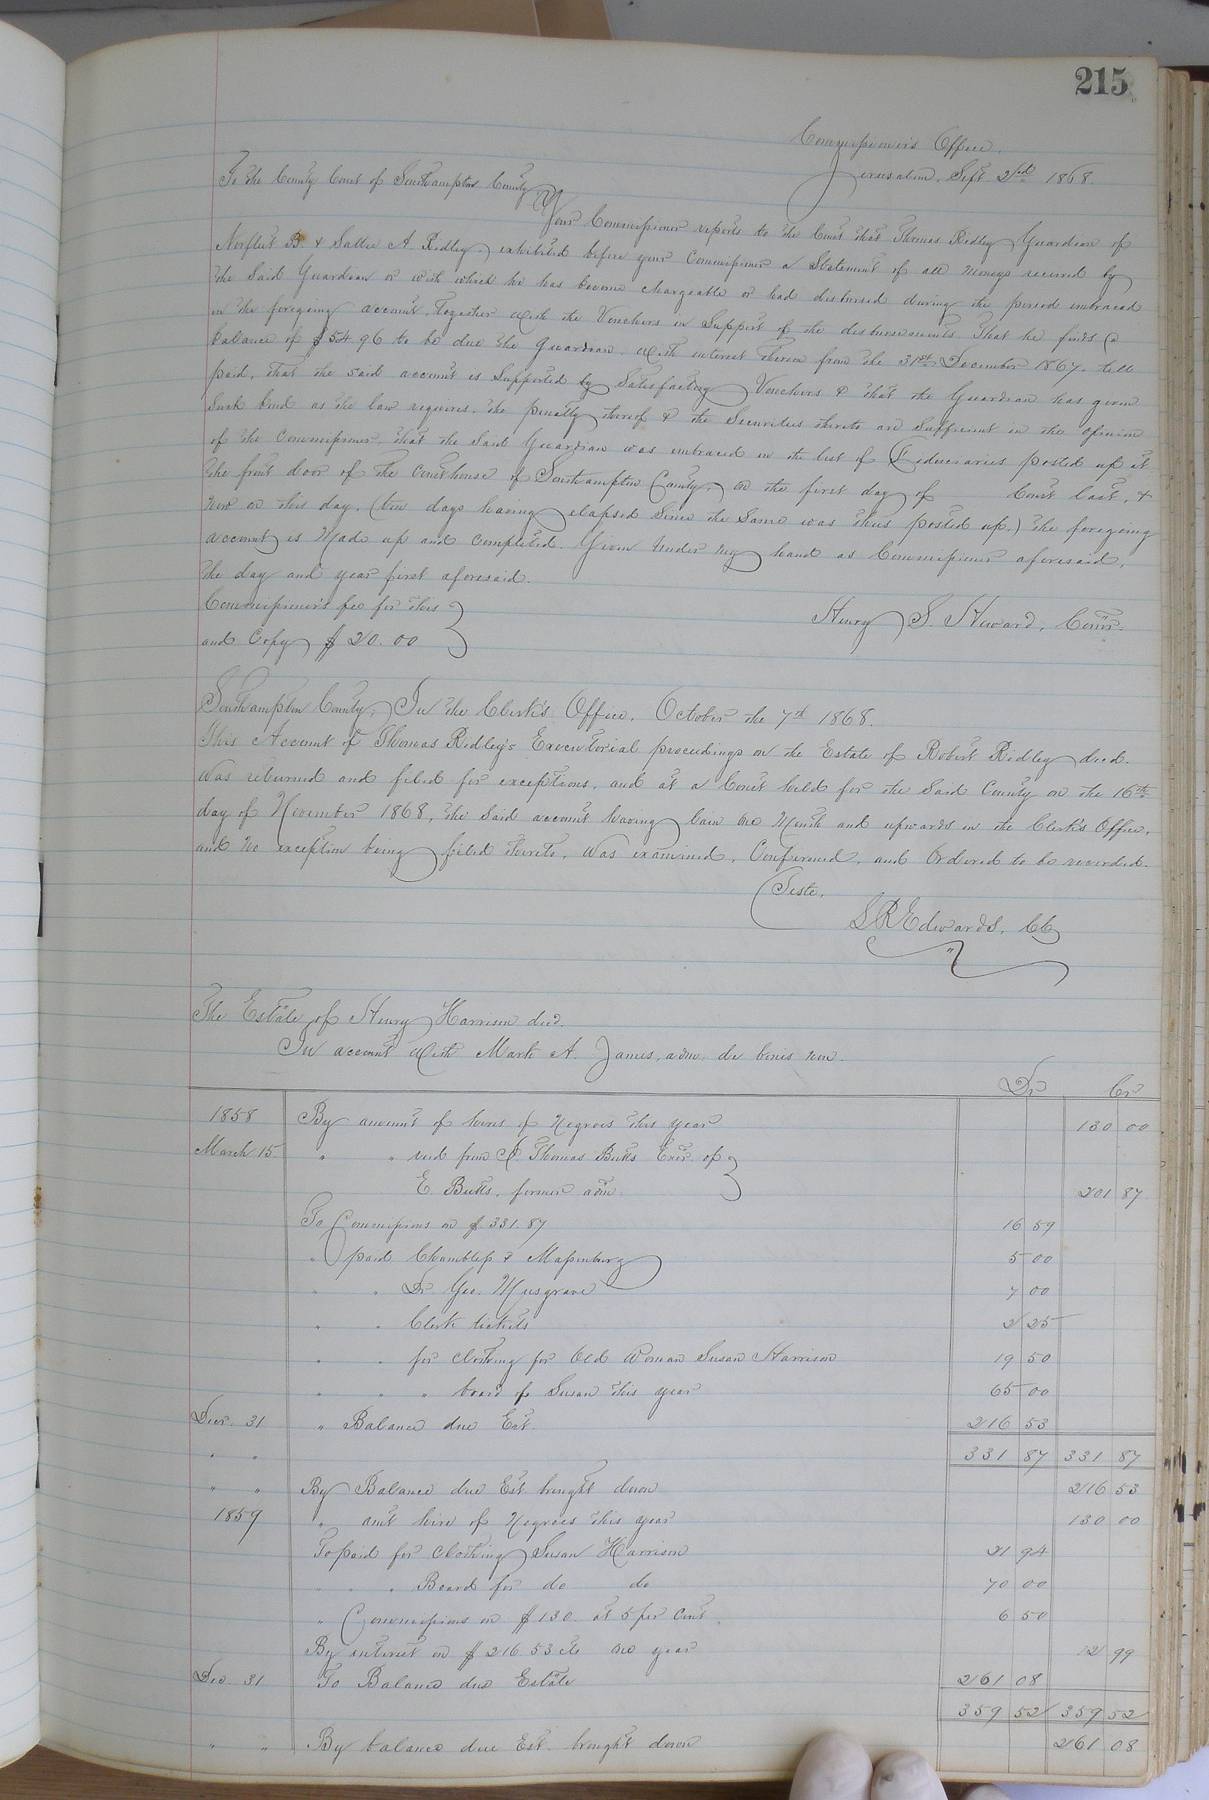 215
Commissioner's Office,
Jerusalem, Sept 2nd 1868.
To the County Court of Southampton County,
Your Commissioner reports to the Court that Thomas Ridley Guardian of
Norfleet B. & Sallie A Ridley, exhibited before your Commissioner a Statement of all moneys received by
the said Guardian or with which he has become chargeable or had disbursed during the period embraced
in the foregoing account, together with the Vouchers in Support of the disbursements That he finds a
balance of $54.96 to be due the guardian with interest thereon from the 31st December 1867. till
paid, that the said account is Supported by Satisfactory Vouchers & that the Guardian has given
Such bond as the law requires, the penalty thereof & the Securities thereto are Sufficient in the opinion
of the Commissioner, that the Said Guardian was embraced in the list of Fiduciaries posted up at
the front door of the Courthouse of Southampton County, on the first day of Court last, &
now on this day, (ten days having elapsed Since the Same was thus posted up.) the foregoing
account is Made up and completed. Given under my hand as Commissioner aforesaid,
the day and year first aforesaid.
Commissioner's fee for this
and Copy $20.00
Henry S. Howard, Comr.
Southampton County, In the Clerk's Office, October the 7th 1868.
This Account of Thomas Ridley's Executorial proceedings on the Estate of Robert Ridley decd.
was returned and filed for exceptions, and at a Court held for the said County on the 16th
day of November 1868, the said account having lain one Month and upwards in the Clerk's Office,
and no exception being filed thereto, was examined, Confirmed, and Ordered to be recorded.
Teste,
L R Edwards, CC
The Estate of Henry Harrison decd.
In account with Mark A. James, adm. de bonis non.
Dr Cr
1858 By amount of hires of Negroes this year 130 00
March 15 " " recd from Thomas Butts Exor. of
E Butts, former adm. 201 87
To Commissions on $331.87 16 59
" paid Chambliss & Massenburg 5 00
" " Dr. Geo. Musgrave 7 00
" " Clerk tickets 2 25
" " for clothing for Old Woman Susan Harrison 19 50
" " " board of Susan this year 65 00
Decr. 31 " Balance due Est. 216 53
" " 331 87 331 87
" " By Balance due Est brought down 216 53
1859 " amt hire of Negroes this year 130 00
To paid for clothing Susan Harrison 21 94
" " " Board for do do 70 00
" Commissions on $130. at 5 per Cent. 6 50
By interest on $216.53 cts one year 12 99
Dec. 31 To Balance due Estate 261 08
359 52 359 52
" " By balance due Est. brought down 261 08